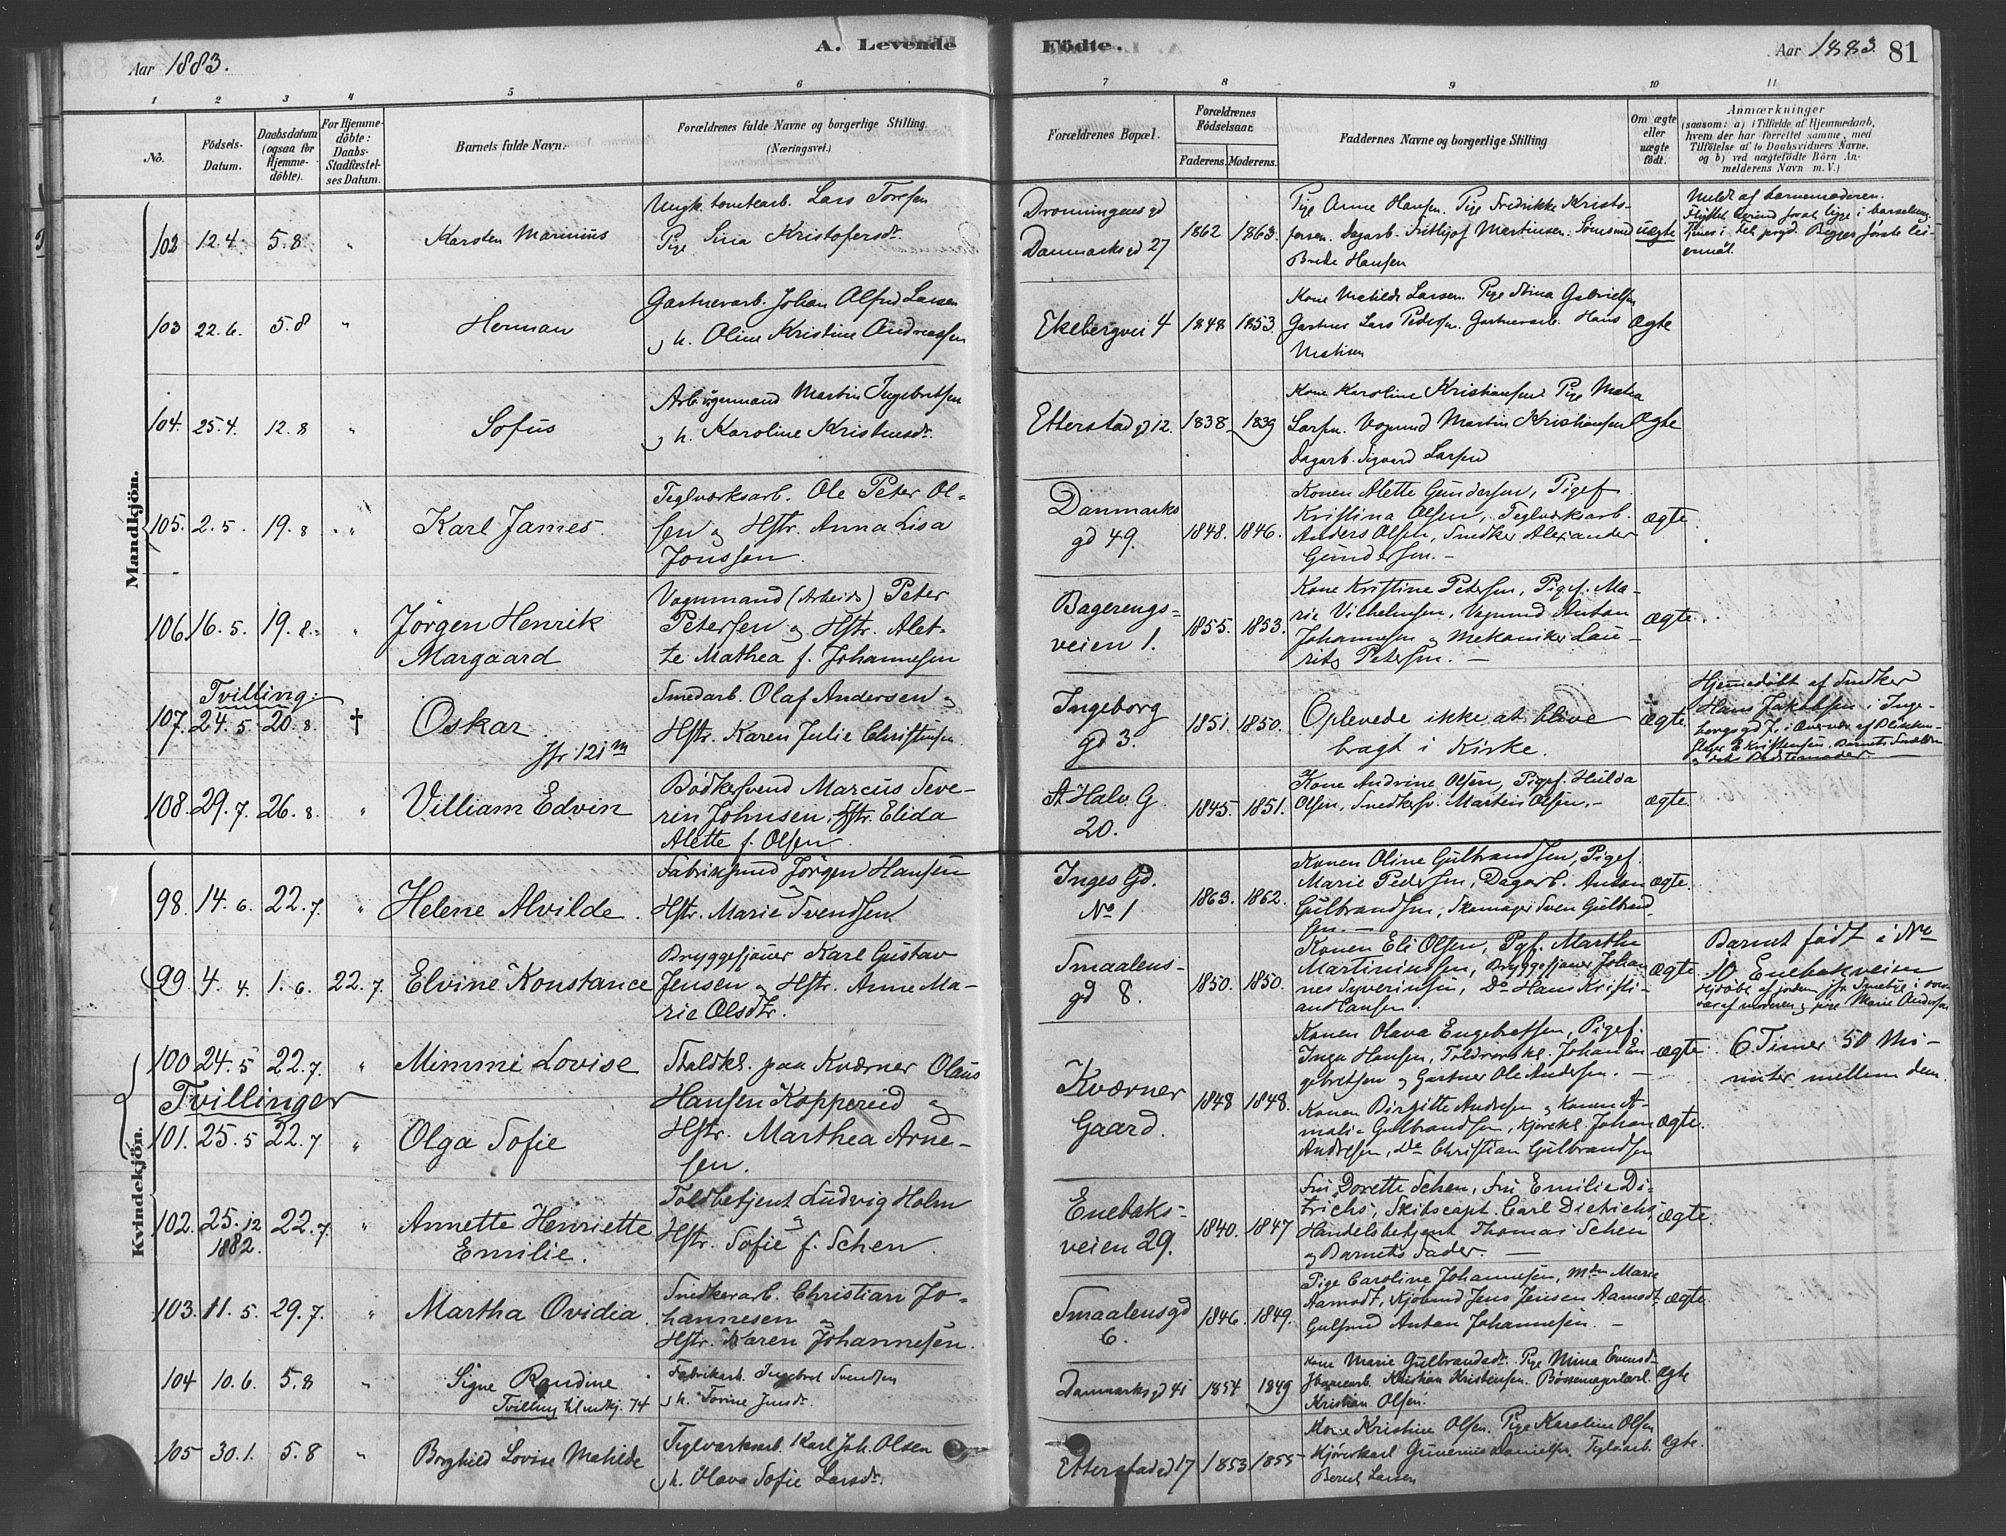 A. Levende
Födte.
Aar 1883.
Aar 1883.
81
1 2 3 4 5 6 7 8 9 10 11
No.
Födsels-
Datum.
Daabsdatum
(ogsaa for
Hjemme-
döbte).
For Hjemme-
döbte:
Daabs-
Stadfæstel-
ses Datum.
Barnets fulde Navn.
Forældrenes fulde Navne og borgerlige Stilling.
(Næringsvei.)
Forældrenes Bopæl.
Forældrenes
Födselsaar.
Faderens. Moderens.
Faddernes Navne og borgerlige Stilling
Om ægte
eller
uægte
födt.
Anmærkninger
(saasom: a) i Tilfælde af Hjemmedaab,
hvem der har forrettet samme, med
Tilföielse af to Daabsvidners Navne.
og b) ved uægtefödte Börn An-
melderens Navn m. V.)
Mandkjön.
102 12.4. 5.8 " Karsten Marinius
Ungk. tomtearb. Lars Toresen
Pige Sina Kristofersdr.
Dronningens gd
Danmarks gd 27
1862 1863.
Pige Anne Hansen. Pige Fredrikke Kristo-
fersen. Dagarb. Frithjof Martinsen. Sömand
Brede Hansen
uægte
Meldt af barnemoderen.
103 22.6. 5.8 " Herman
Gartnerarb. Johan Alfred Larsen
og h. Oline Kristine Andreassen
Ekebergvei 4
1848 1853.
Kone Matilde Larsen. Pige Stina Gabrielsen
Gartner Lars Pedersen. Gartnerarb. Hans
Matisen
Ægte
104. 25.4. 12.8 " Sofus
Martin Ingebretsen
og h. Karoline Kristensdr.
Etterstad gd 12.
1838 1839
Kone Karoline Kristiansen. Pige Maria
Larsen. Vognmd Martin Kristiansen
Dagarb. Sigvard Larsen
Ægte
105. 2.5. 19.8 " Karl James.
Teglværksarb. Ole Peter Ol-
sen og Hstr. Anna Lisa
Jonsson.
Danmarks
gd 49.
1848. 1846.
Konen Alette Gundersen, Pigef
Kristina Olsen, Teglværksarb.
Anders Olsen, Snedker Alexander
Gundersen. —
ægte.
106 16.5. 19.8. " Jörgen Henrik
Margaard
Vognmand (Arbeids) Peter
Petersen og Hstr. Alet-
te Mathea f. Johannesen
Bagerengs-
veien 1.
1855. 1853.
Kone Kristine Petersen, Pigef. Ma-
rie Vilhelmsen, Vognmd Anton
Johannesen og Mekaniker Lau-
rits Petersen. —
ægte.
Tvilling:
107. 24.5 20.8 † Oskar
jfr 121 m
Smedarb. Olaf Andersen og
Hstr. Karen Julie Christensen
Ingeborg
gd 3.
1851 1850.
Oplevede ikke at blive
bragt i Kirke.
ægte.
Hjemmedöbt af Snedker
Hans Jakobsen i Inge-
108. 29.7. 26.8. " Villiam Edvin
Bödkersvend Marcus Seve-
rin Johnsen, Hstr. Elida
Alette f. Olsen
St Halv. G.
20.
1845. 1851.
Kone Andrine Olsen, Pigef. Hulda
Olsen, Snedkersv. Martin Olsen. —
ægte.
Kvindekjön.
98. 14.6. 22.7. " Helene Alvilde.
Fabriksmd Jörgen Hansen
Hstr. Marie Svendsen
Inges Gd.
No 1
1863. 1862.
Konen Oline Gulbrandsen, Pigef.
Marie Pedersen, Dagarb. Anton
Gulbrandsen, Skomager Sven Gulbrand-
sen. —
ægte.
99. 4.4. 1.6. 22.7. Elvine Konstance
Bryggesjauer Karl Gustav
Jensen og Hstr. Anne Ma-
rie Olsdtr.
Smaalens-
gd 8.
1850. 1850.
Konen Eli Olsen, Pgf. Martha
Martiniusen, Bryggesjauer Johan-
nes Syverinsen, Do Hans Kristi-
an Hansen.
ægte.
Barnet födt i No
10 Enebakveien
100 24.5 22.7. " Mimmi Lovise
Tvillinger
101. 25.5 22.7 " Olga Sofie
Staldkl. paa Kværner Olaus
Hansen Koppereid og
Hstr. Marthea Arne-
sen.
Kværner
Gaard.
1848 1848.
Konen Olava Engebretsen, Pigef.
Inga Hansen, Johan En-
gebretsen og Gartner Ole Andersen. —
ægte
Konen Birgitte Andresen og Konen A-
malie Gulbrandsen, Kjörekl. Johan
Andresen, Do Christian Gulbrandsen
ægte.
6 Timer 50 Mi-
nuter mellem dem.
102. 25.12 1882. 22.7. " Annette Henriette
Emilie.
Toldbetjent Ludvig Holm
og
Hstr. Sofie f. Schen.
Enebaks-
veien 29.
1840. 1847
Fru Dorette Schen, Fru Emilie Di-
trichs, Skibscapt. Carl Dietrichs,
Handelsbetjent Thomas Schen
og Barnets Fader. —
ægte.
103. 11.5. 29.7. " Martha Ovidia.
Snedkerarb. Christian Jo-
hannesen og
Hstr. Karen Johannesen.
Smaalensgd
6.
1846. 1849.
Pige Caroline Johannesen, Mdm Marie
Aamodt, Kjöbmd Jens Jensen Aamodt
Anton Johannesen. —
ægte.
104 10.6. 5.8 " Signe Randine
Tvilling til mdkj. 74
Fabrikarb. Ingebret Svendsen
og h. Torine Jensdr.
Danmarks gd 41
1854 1849
Kone Marie Gulbrandsdr. Pige Mina Evensdr.
Kristian Kristensen. Bössemagerlærl.
Kristian Olsen.
ægte
105 30.1. 5.8 " Borghild Lovise Matilde
Teglværksarb. Karl Joh. Olsen
og h. Olava Sofie Larsdr.
Etterstad gd 17
1853 1855
Kone Kristine Olsen. Pige Karoline Olsen
Kjörekarl Gunerius Danielsen. Teglv.arb.
Bernt Larsen
ægte.